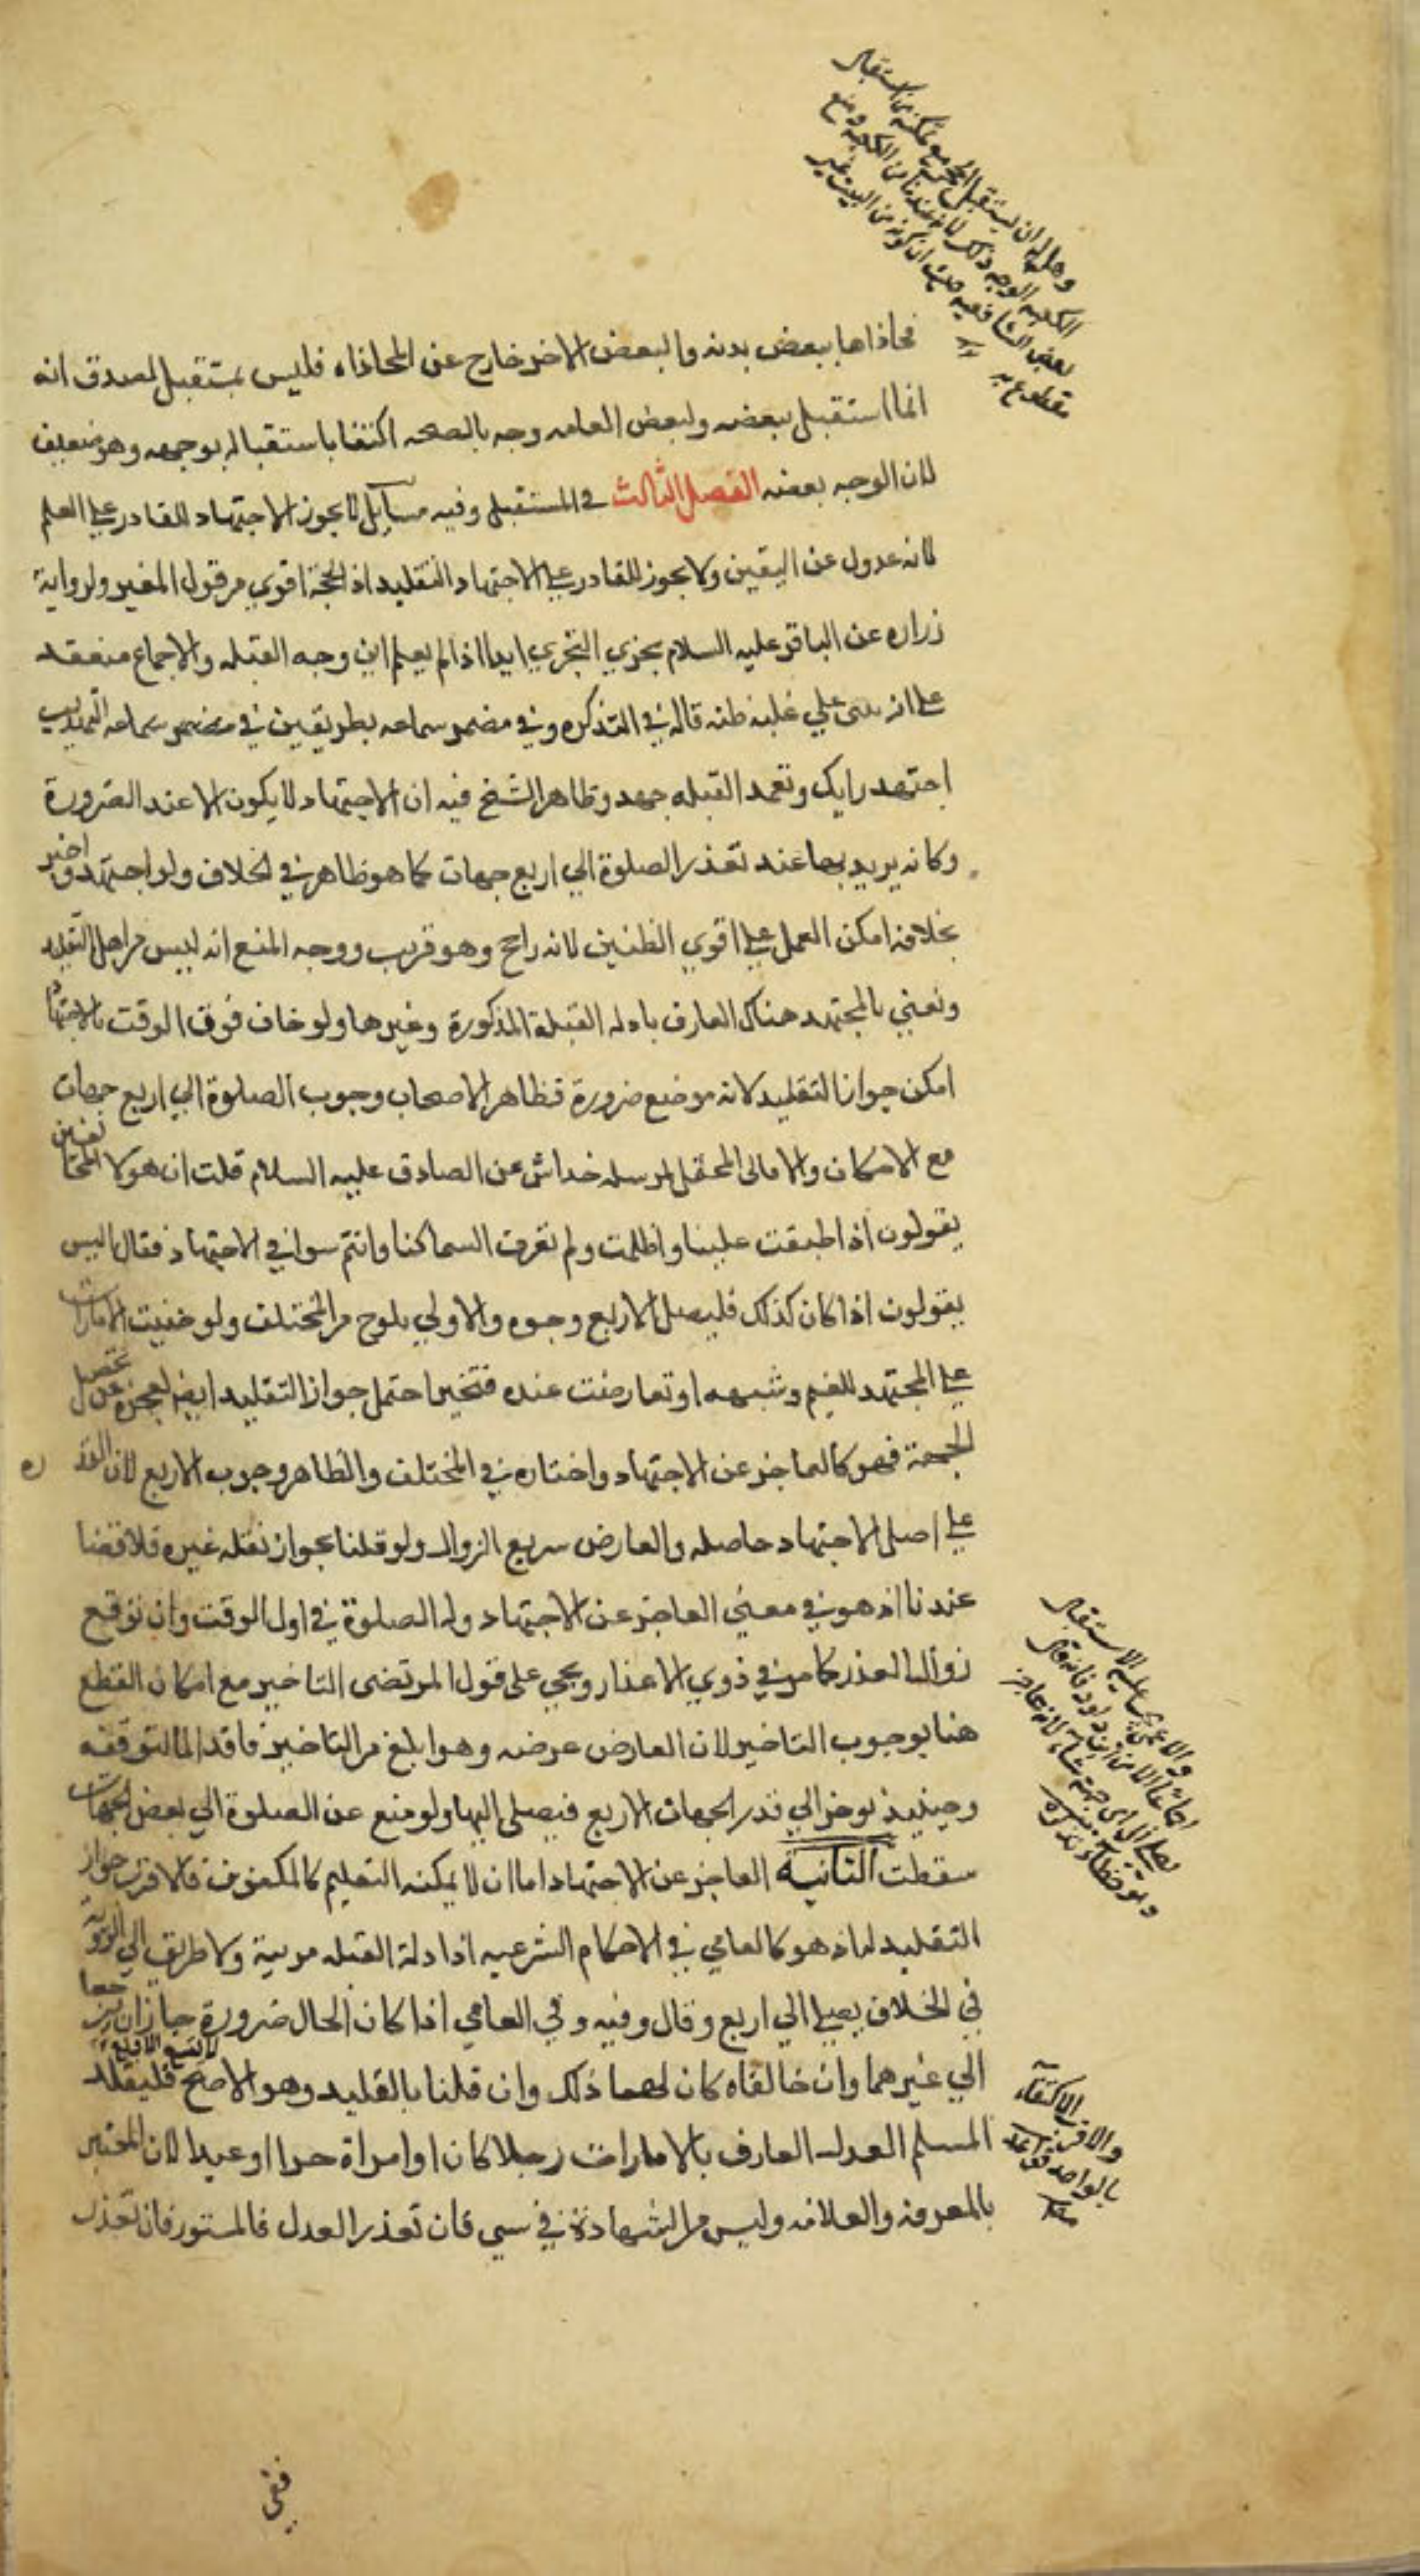 وهل له ان يستقبل الحجر مع تمكنه من استقبال
الكعبه الوجه ذلك لانه عندنا من الكعبه ومنع
بعض الشافعيه لان كونه من البيت غير
مقطوع به
فحاذاها ببعض بدنه والبعض الاخر خارج عن المحاذاه فليس بمستقبل لصدق انه
انما استقبل ببعضه ولبعض العامه وجه بالصحه اكتفا باستقباله بوجهه وهو ضعيف
لان الوجه بعضه الفصل الثالث في المستقبل وفيه مسايل لا يجوز الاجتهاد للقادر علي العلم
لانه عدول عن اليقين ولا يجوز للقادر علي الاجتهاد التقليد اذ الحجة اقوي من قول الغير ولرواية
زراره عن الباقر عليه السلام يجزي التحري ابدا اذا لم يعلم اين وجه القبله والاجماع منعقد
علي انه بنى علي غلبه ظنه قاله في التذكره وفي مضمر سماعه بطريقين في مضمر سماعه التهذيب
اجتهد رايك وتعمد القبله جهدك وظاهر الشيخ فيه ان الاجتهاد لا يكون الا عند الضرورة
وكانه يريد بها عند تعذر الصلوة الي اربع جهات كما هو ظاهره في الخلاف ولو اجتهد واخبر
بخلافه امكن العمل علي اقوي الظنين لانه راجح وهو قريب ووجه المنع انه ليس من اهل التقليد
ونعني بالمجتهد هناك العارف بادله القبلة المذكورة وغيرها ولو خاف فوت الوقت بالاجتهاد
امكن جواز التقليد لانه موضع ضرورة فظاهر الاصحاب وجوب الصلوة الي اربع جهات
مع الامكان والا فالى المحتمل لمرسله خداش عن الصادق عليه السلام قلت ان هولا المخالفين
يقولون اذا اطبقت علينا واظلمت ولم نعرف السما كنا وانتم سوا في الاجتهاد فقال ليس
يقولون اذا كان كذلك فليصل لاربع وجوه والاولي يلوح من المختلف ولو خفيت الامارات
علي المجتهد للغيم وشبهه او تعارضت عنده فتحير احتمل جواز التقليد ايضا لعجزه عن تحصيل
الجهة فهو كالعاجز عن الاجتهاد واختاره في المختلف والظاهر وجوب الاربع لان القدره
علي اصل الاجتهاد حاصله والعارض سريع الزوال ولو قلنا بجواز تقليد غيره فلا قضا
عندنا اذ هو في معني العاجز عن الاجتهاد وله الصلوة في اول الوقت وان توقع
زوال العذر كما مر في ذوي الاعذار ويجي على قول المرتضى التاخير مع امكان القطع
هنا بوجوب التاخير لان العارض عرضه وهو ابلغ من التاخير فاقد الما لتوقعه
وحينيذ يوخر الي قدر الجهات الاربع فيصلى اليها ولو منع عن الصلوة الي بعض الجهات
سقطت الثانية العاجز عن الاجتهاد اما ان لا يمكنه التعليم كالمكفوف فالاقرب جواز
التقليد له اذ هو كالعامي في الاحكام الشرعيه اذ ادلة القبله مرئية ولا طريق الي الرؤيه
في الخلاف يصلي الي اربع وقال وفيه وفي العامي اذا كان الحال ضرورة جاز ان يرجعا
الي غيرهما وان خالفاه كان لهما ذلك وان قلنا بالتقليد وهو الاصح فليقلد
المسلم العدل العارف بالامارات رجلا كان او امراة حرا او عبدا لان المعتبر
بالمعرفه والعلامه وليس من الشهادة في شي فان تعذر العدل فالمستور فان تعذر
والاعمى عليه الاستقبال
اجماعا الا من داود فانه قال
يصلي الى اى جهة شاء لانه عاجز
والاقرب الاكتفاء
بالواحد